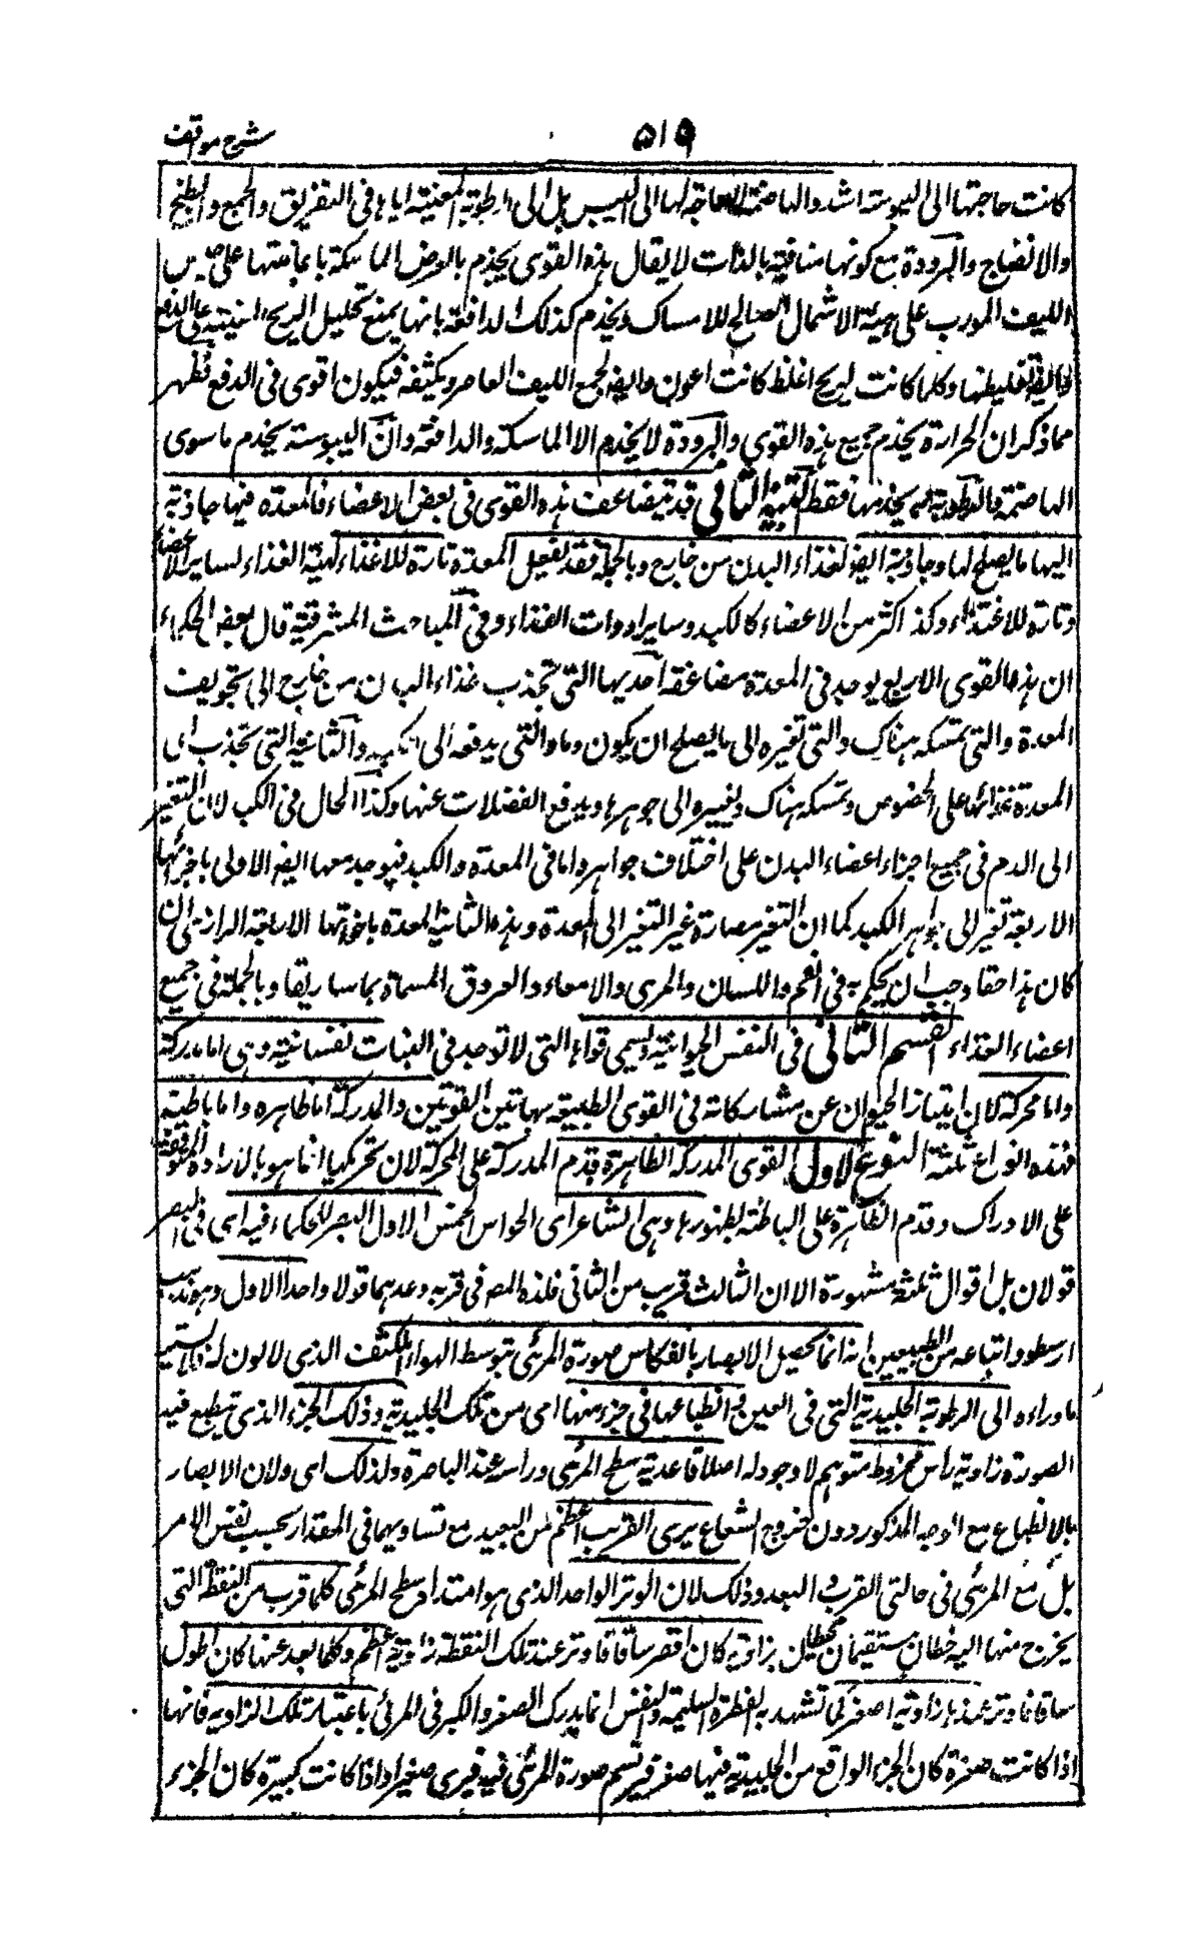 ۵۱۹ شرح مواقف
كانت حاجتها الى اليبوسة اشد والهاضمة لا حاجة لها الى اليبس بل الى الرطوبة المعينة اياها فى التفريق والجمع والطبخ
والانضاج والبرودة مع كونها منافية بالذات لا يقال هذه القوى يخدم بالعرض الماسكة باعانتها على حبس
الليف المورب على هيئة الاشتمال الصالح للامساك ويخدم كذلك الدافعة بانها يمنع تحليل الريح المعينة على الدفع
تغليظها وكلما كانت الريح اغلظ كانت اعون وايضا يجمع الليف العاصر ويكثفه فيكون اقوى فى الدفع فظهر
مما ذكر ان الحرارة يخدم جميع هذه القوى والبرودة لا يخدم الا الماسكة والدافعة وان اليبوسة يخدم ما سوى
الهاضمة والرطوبة يخدمها فقط التنبيه الثانى قد يتضاعف هذه القوى فى بعض الاعضاء فالمعدة فيها جاذبة
اليها ما يصلح لها وجاذبة ايضا لغذاء البدن من خارج وبالجملة فقد تفعل المعدة تارة للاغذاء لهيئة الغذاء لساير الاعضاء
وتارة للاغتذاء وكذا اكثر من الاعضاء كالكبد وساير ادوات الغذاء وفى المباحث المشرقية قال بعض الحكماء
ان هذه القوى الاربع يوجد فى المعدة مضاعفة احديها التى تجذب غذاء البدن من خارج الى تجويف
المعدة والتى تمسكه هناك والتى تغيره الى ما يصلح ان يكون دما والتى يدفعه الى الكبد والثانية التى تجذب اى
المعدة غذائها على الخصوص وتمسكه هناك وتغييره الى جوهرها ويدفع الفضلات عنها وكذا الحال فى الكبد لان التغير
الى الدم فى جميع اجزاء اعضاء البدن على اختلاف جواهرها واما فى المعدة والكبد فيوجد معها ايضا الاولى باجزائها
الاربعة تغير الى جواهر الكبد كما ان التغير عصارة غير التغير الى المعدة وهذه الثانية المعدة باخواتها الاربعة الرازى ان
كان هذا حقا وجب ان يحكم به فى الفم واللسان والمرى والامعاء والعروق المسماة بماساريقا وبالجملة فى جميع
اعضاء الغذاء القسم الثانى فى النفس الحيوانية ويسمى قواها التى لا توجد فى النبات نفسانية وهى اما مدركة
واما محركة لان امتياز الحيوان عن مشاركاته فى القوى الطبيعية بهاتين القوتين والمدركة اما ظاهرة واما باطنة
فهذه انواع ثلثة النوع الاول القوى المدركة الظاهرة قدم المدركة على المحركة لان تحريكها انما هو بالارادة المتوقفة
على الادراك وقدم الظاهرة على الباطنة لظهورها وهى المشاعر اى الحواس الخمس الاول البصر للحكماء فيه اى فى البصر
قولان بل اقوال ثلثة مشهورة الا ان الثالث قريب من الثانى فلذا المص فى قربه وعدهما قولا واحدا الاول وهو مذهب
ارسطو واتباعه من الطبيعيين انه انما يحصل الابصار بانعكاس صورة المرئى بتوسط الهواء المشف الذى لا لون له فلا يستر
ما وراءه الى الرطوبة الجليدية التى فى العين وانطباعها فى جزء منها اى من تلك الجليدية وذلك الجزء الذى تنطبع فيه
الصورة زاوية راس مخروط متوهم لا وجود له اصلا قاعدته سطح المرئى وراسه عند الباصرة ولذلك اى ولان الابصار
بالانطباع مع الوجه المذكور دون خروج الشعاع يرى القريب اعظم من البعيد مع تساويهما فى المقدار بحسب نفس الامر
بل مع المرئى فى حالتى القرب والبعد وذلك لان الوتر الواحد الذى هو امتداد سطح المرئى كلما قرب من النقطة التى
يخرج منها اليه خطان مستقيمان محيطان بزاوية كان اقصر ساقا فاوتر عند تلك النقطة زاوية اعظم وكلما بعد عنها كان اطول
ساقا فاوتر عندها زاوية اصغر كما تشهد به الفطرة السليمة والنفس انما يدرك الصغر والكبر فى المرئى باعتبار تلك الزاوية فانها
اذا كانت صغيرة كان الجزء الواقع من الجليدية فيها صغير فيرتسم صورة المرئى فيه فيرى صغيرا واذا كانت كبيرة كان الجزء